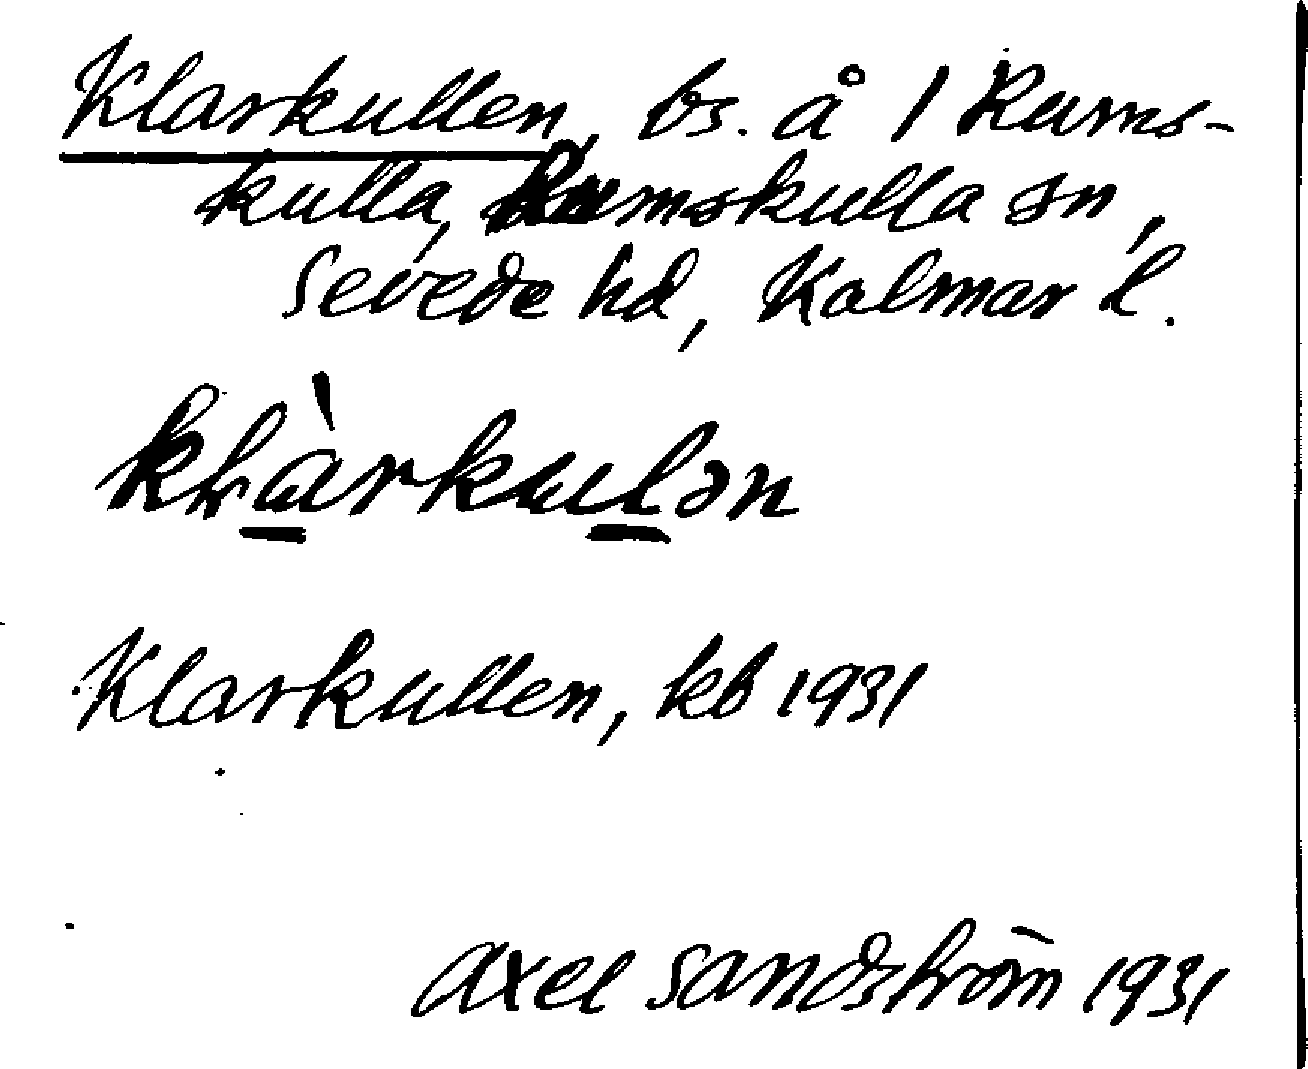 Klarkullen, bs. å 1 Rums-
kulla, Rumskulla sn,
Sevede hd, Kalmar l.
kḷàrkulən
Klarkullen, kb 1931
Axel Sandström 1931